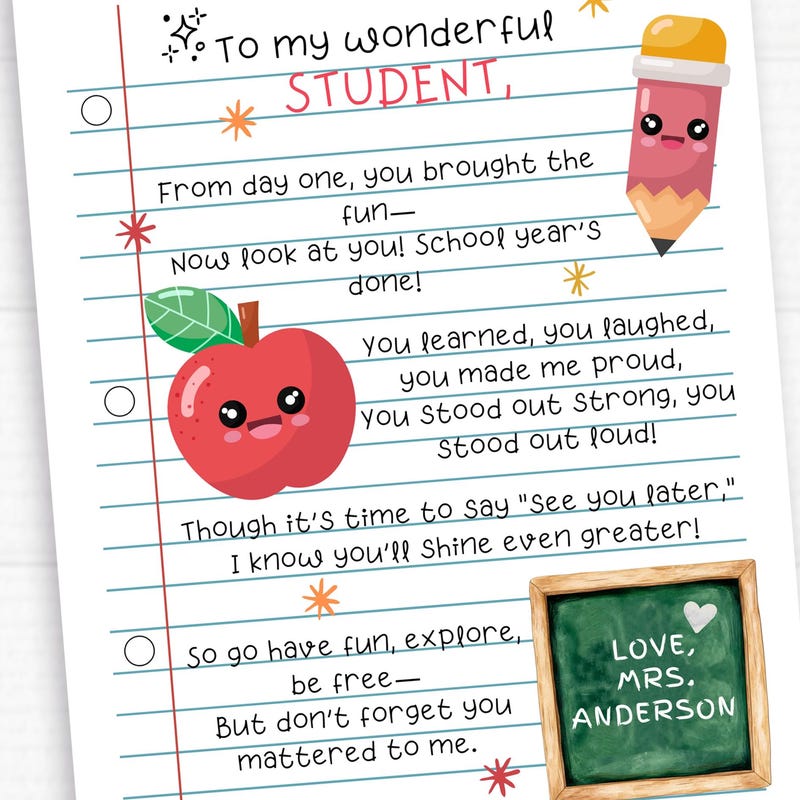 To my wonderful
STUDENT,
From day one, you brought the
fun—
Now look at you! School year's
done!
You learned, you laughed,
you made me proud,
You stood out strong, you
stood out loud!
Though it's time to say "see you later,"
I know you'll shine even greater!
So go have fun, explore,
be free—
But don't forget you
mattered to me.
LOVE,
MRS.
ANDERSON